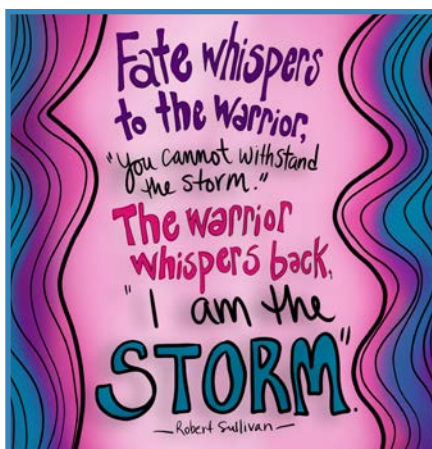 Fate whispers
to the warrior,
"You cannot withstand
the storm."
The warrior
whispers back,
"I am the
STORM".
— Robert Sullivan —